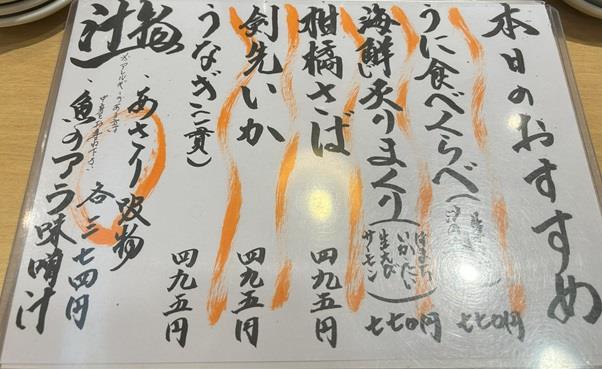 本日のおすすめ
うに食べくらべ
七七〇円
海鮮炙りまくり
はまち
いか たい
生えび
サーモン
七七〇円
柑橘さば
四九五円
剣先いか
四九五円
うなぎ(二貫)
四九五円
汁物
・あさり吸物
各三七四円
・魚のアラ味噌汁